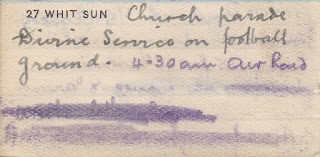 27 WHIT SUN Church parade
Divine Service on football
ground. 4.30 am Air Raid